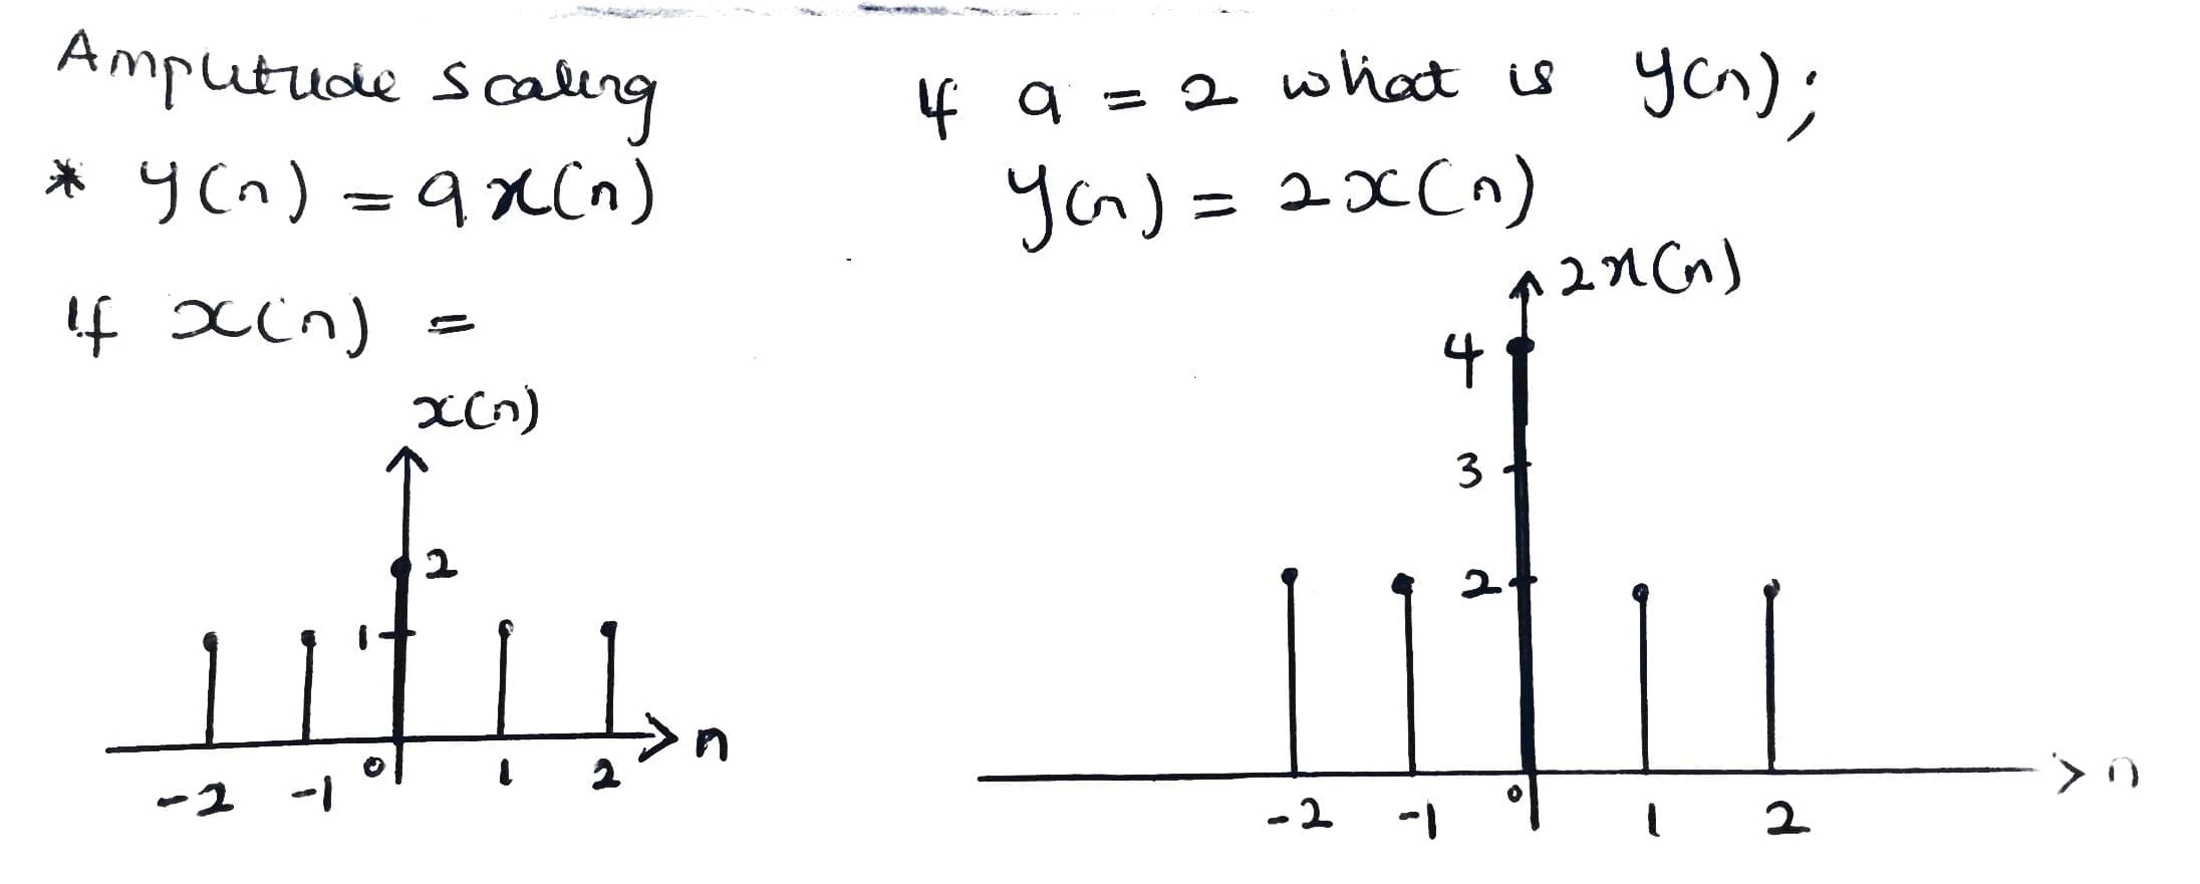 Amplitude scaling
* y(n) = a x(n)
If x(n) =
x(n)
2
1
-2 -1 0 1 2 n
If a = 2 what is y(n);
y(n) = 2x(n)
2x(n)
4
3
2
-2 -1 0 1 2 n